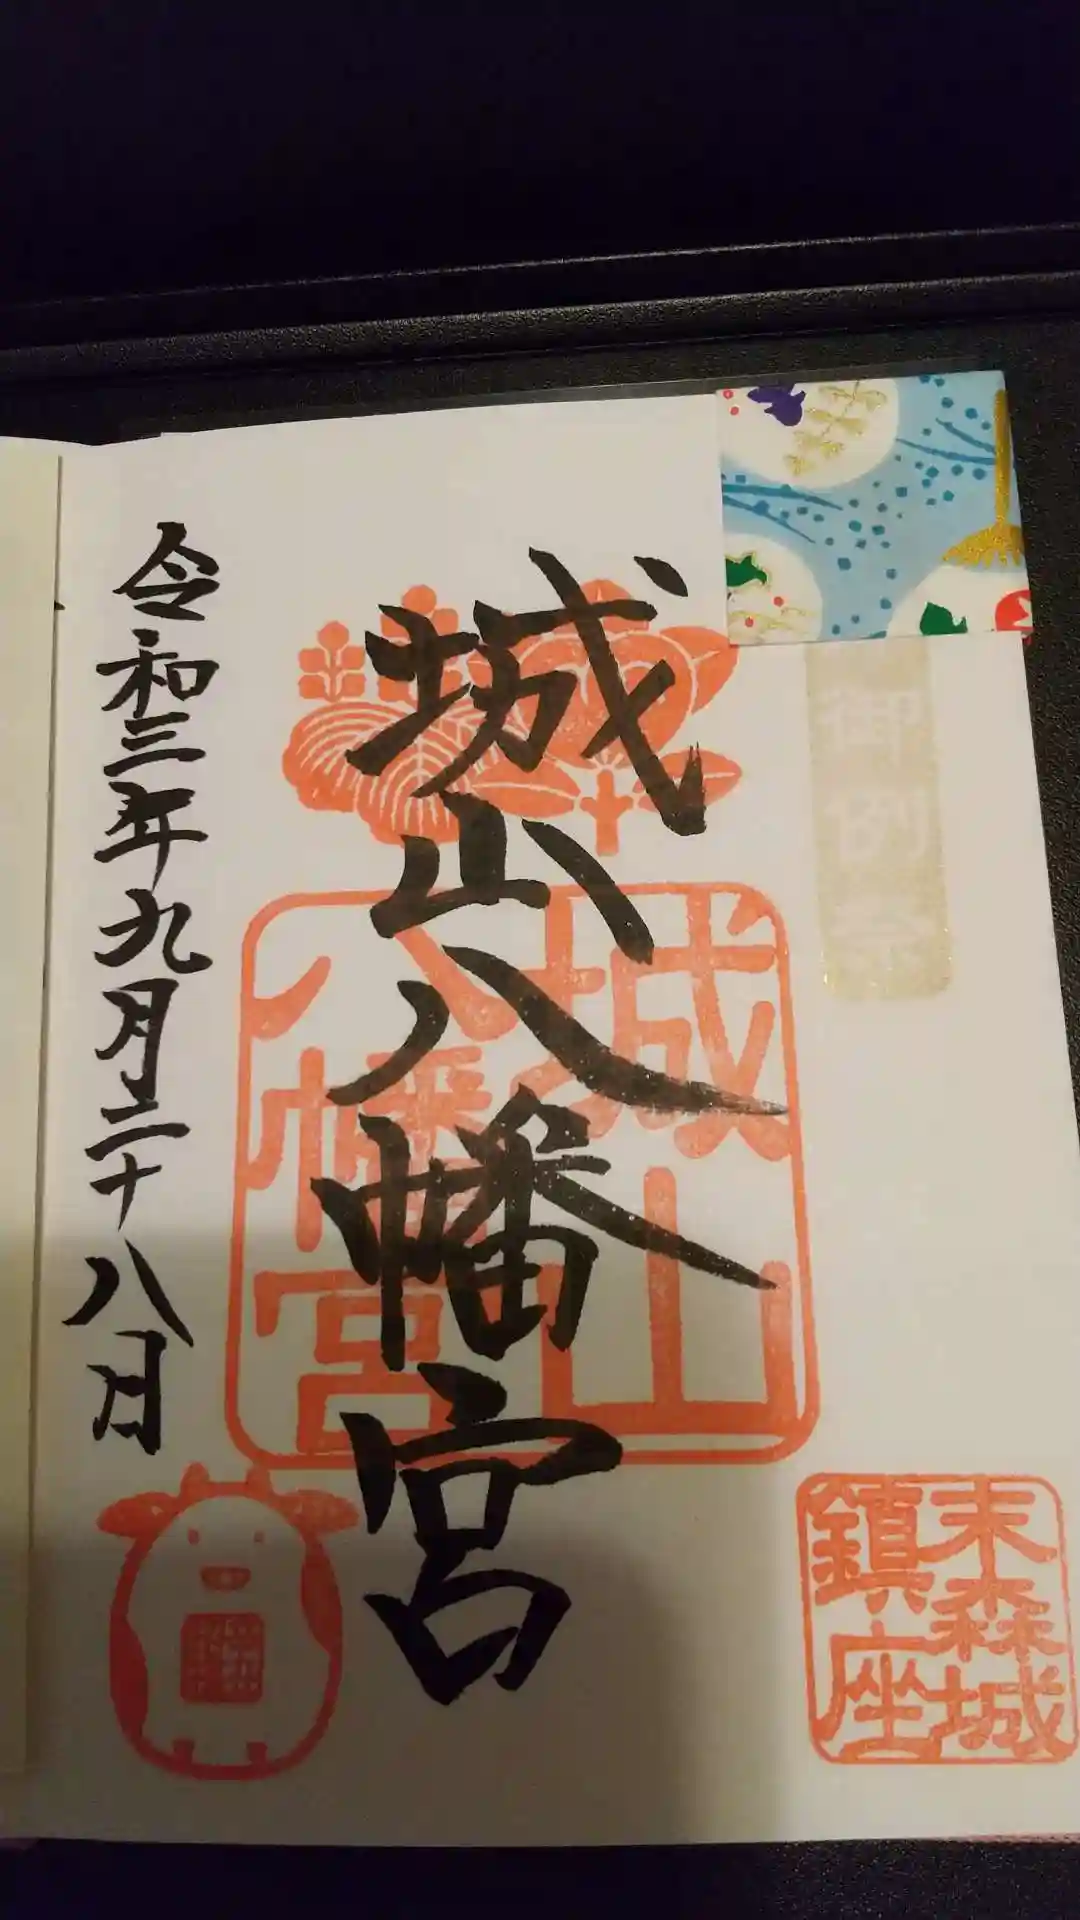 御例祭
末森城
鎮座
城山八幡宮
城山
八幡宮
令和三年九月二十八日